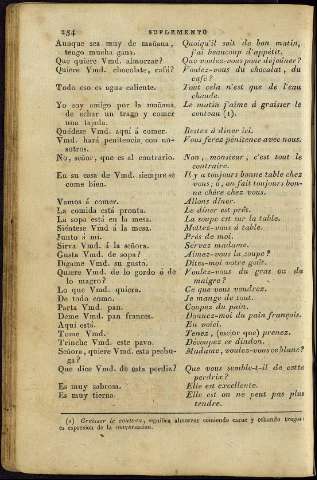 254 SUPLEMENTO
Aunque sea muy de mañana, Quoiqu'il soit de bon matin,
tengo mucha gana. j'ai beaucoup d'appétit.
Que quiere Vmd. almorzar? Que voulez-vous pour déjeûner?
Quiere Vmd. chocolate, café? Voulez-vous du chocolat, du
café?
Todo eso es agua caliente. Tout cela n'est que de l'eau
chaude.
Yo soy amigo por la mañana Le matin j'aime à graisser le
de echar un trago y comer couteau (1).
una tajada.
Quédese Vmd. aquí á comer. Restez à dîner ici.
Vmd. hará penitencia con no- Vous ferez pénitence avec nous.
sotros.
No, señor, que es al contrario. Non, monsieur, c'est tout le
contraire.
En su casa de Vmd. siempre se Il y a toujours bonne table chez
come bien. vous; ó, on fait toujours bon-
ne chère chez vous.
Vamos á comer. Allons dîner.
La comida está pronta. Le dîner est prêt.
La sopa está en la mesa. La soupe est sur la table.
Siéntese Vmd. á la mesa. Mettez-vous à table.
Junto á mí. Près de moi.
Sirva Vmd. á la señora. Servez madame.
Gusta Vmd. de sopa? Aimez-vous la soupe?
Dígame Vmd. su gusto. Dites-moi votre goût.
Quiere Vmd. de lo gordo ó de Voulez-vous du gras ou du
lo magro? maigre?
Lo que Vmd. quiera. Ce que vous voudrez.
De todo como. Je mange de tout.
Parta Vmd. pan. Coupez du pain.
Déme Vmd. pan frances. Donnez-moi du pain français.
Aquí está. En voici.
Tome Vmd. Tenez, (mejor que) prenez.
Trinche Vmd. este pavo. Découpez ce dindon.
Señora, quiere Vmd. esta pechu- Madame, voulez-vous ce blanc?
ga?
Que dice Vmd. de esta perdiz? Que vous semble-t-il de cette
perdrix?
Es muy sabrosa. Elle est excellente.
Es muy tierna. Elle est on ne peut pas plus
tendre.
(1) Graisser le couteau, significa almorzar comiendo carne y echando tragos:
es expresion de la